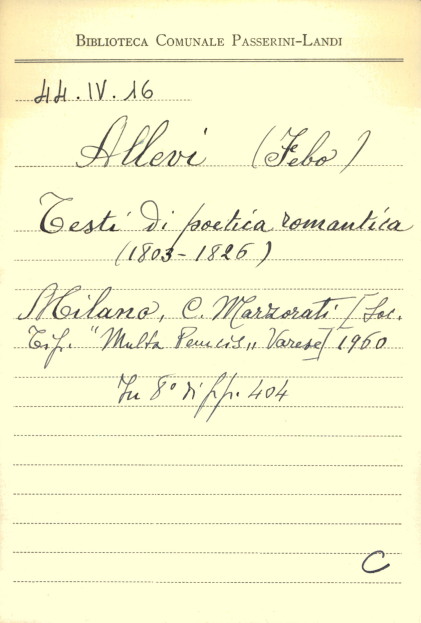 BIBLIOTECA COMUNALE PASSERINI-LANDI
44.IV.16
Allevi (Febo)
Testi di poetica romantica
(1803-1826)
Milano, C. Marzorati [Soc.
Tip. "Multa Paucis„ Varese] 1960
In 8° di pp. 404
C